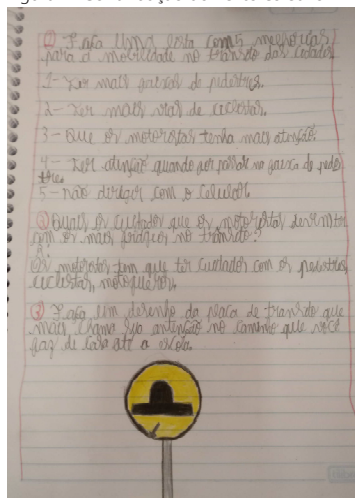 ① Faça uma lista com 5 melhorias
para a mobilidade no trânsito das cidades
1- Ter mais faixas de pedestres.
2- Ter mais vias de ciclistas.
3- Que os motoristas tenha mais atenção.
4- Ter atenção quando for passar na faixa de pedes
tres.
5- não dirigir com o celular.
② Quais os cuidados que os motoristas devem ter
com os mais frágeis no trânsito?
R:
Os motoristas tem que ter cuidados com os pesestres,
ciclistas, motoqueiros.
③ Faça um desenho da placa de trânsito que
mais chama sua antenção no caminho que você
faz de casa até a escola.